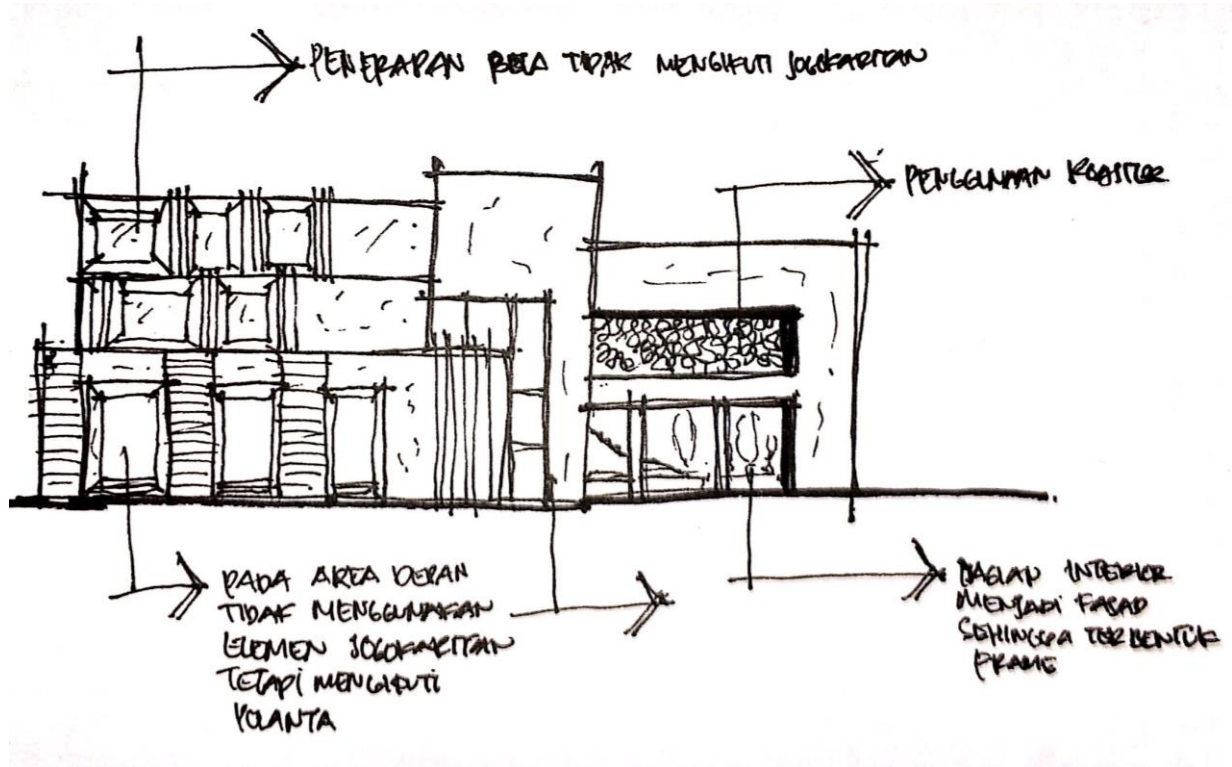 PENERAPAN BATA TIDAK MENGIKUTI JOGOKARITAN
PENGGUNAAN ROASTER
PADA AREA DEPAN
TIDAK MENGGUNAKAN
ELEMEN JOGOKARITAN
TETAPI MENGIKUTI
BAGIAN INTERIOR
MENJADI FASAD
SEHINGGA TERBENTUK
FRAME